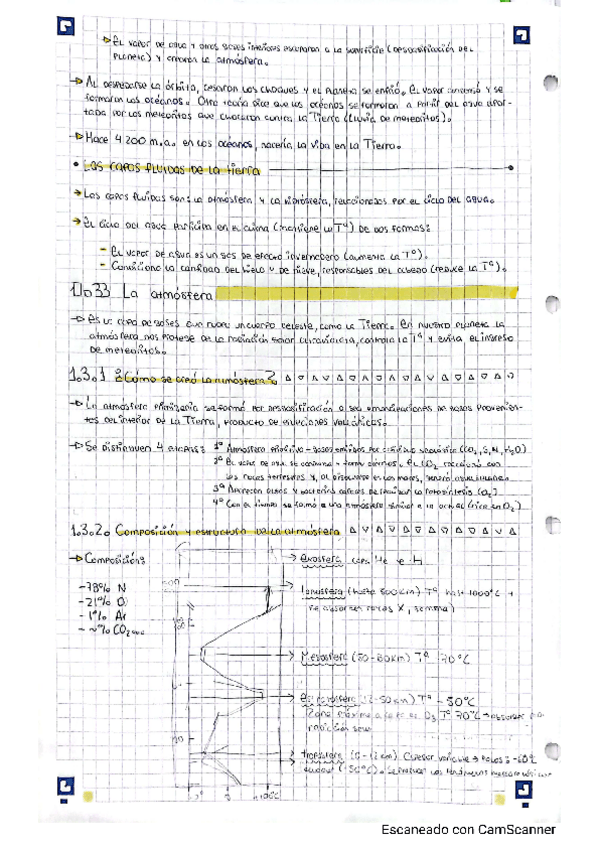 → El vapor de agua y otros gases interiores escaparon a la superficie (desgasificación del
planeta) y crearon la atmósfera.
→ Al despejarse la órbita, cesaron los choques y el planeta se enfrió. El vapor condensó y se
formaron los océanos. Otra teoría dice que los océanos se formaron a partir del agua apor-
tada por los meteoritos que chocaron contra la Tierra (lluvia de meteoritos).
→ Hace 4200 m.a. en los océanos, nacería la vida en la Tierra.
• LAS CAPAS FLUIDAS DE LA TIERRA
→ Las capas fluidas son: la atmósfera y la hidrosfera, relacionados por el ciclo del agua.
→ El ciclo del agua participa en el clima (incluye la Tª) de dos formas:
- El vapor de agua es un gas de efecto invernadero (aumenta la Tª).
- Condiciona la cantidad del hielo y de nieve, responsables del albedo (reduce la Tª).
La atmósfera
→ Es la capa de gases que rodea un cuerpo celeste, como la Tierra. En nuestro planeta la
atmósfera nos protege de la radiación solar ultravioleta, controla la Tª y evita el ingreso
de meteoritos.
1.3.1 ¿Cómo se creó la atmósfera?
→ La atmósfera primigenia se formó por desgasificación o sea emanaciones de gases provenien-
tes del interior de la Tierra, producto de erupciones volcánicas.
→ Se distinguen 4 etapas: 1º Atmósfera primitiva - gases emitidos por actividad volcánica (CO₂, S, N, H₂O)
2º El vapor de agua se condensa y forma océanos. El CO₂ reacciona con
las rocas terrestres y, al disolverse en los mares,
3º Aparecen algas y bacterias capaces de realizar la fotosíntesis (O₂)
4º Con el tiempo se formó a una atmósfera similar a la actual (rica en O₂)
1.3.2. Composición y estructura de la atmósfera
→ Composición:
-78% N
-21% O
-1% Ar
CO₂
→ Exosfera con He e H
→ Ionosfera (hasta 500km) Tª hasta 1000ºC
se absorben rayos X, gamma)
→ Mesosfera (50-80km) Tª -70ºC
→ Estratosfera (12-50km) Tª -50ºC
Zona máxima O₃
radiación solar
→ troposfera (0-12km)
Escaneado con CamScanner